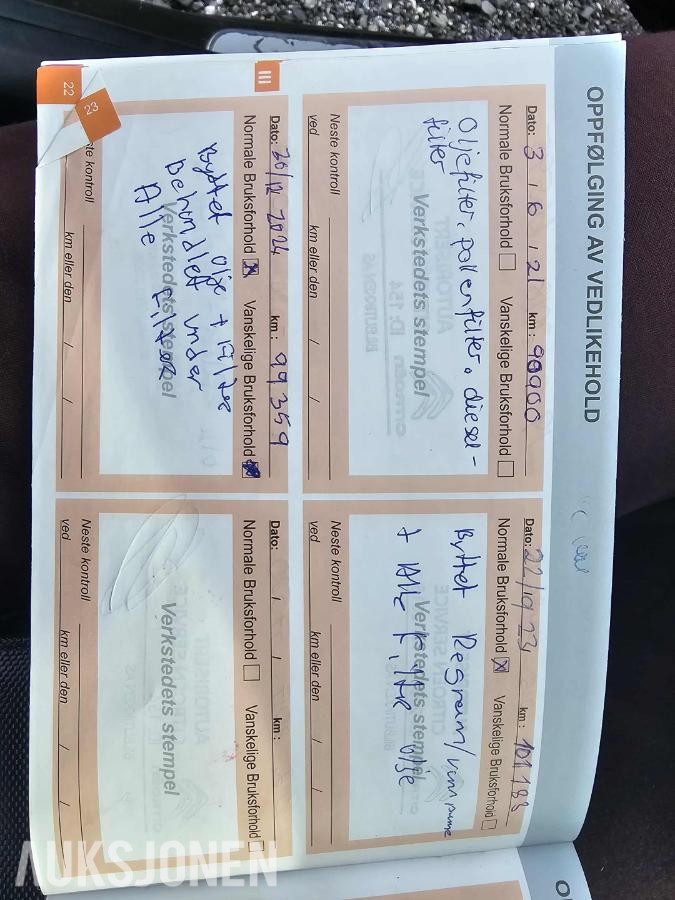 OPPFØLGING AV VEDLIKEHOLD
Dato: 3 / 6 / 21 km: 90900
Normale Bruksforhold Vanskelige Bruksforhold
Oljefilter, pollenfilter, diesel-
filter
Verkstedets stempel
Neste kontroll
ved km eller den / /
Dato: 22/9 23 km: 101188
Normale Bruksforhold X Vanskelige Bruksforhold
Byttet Regreim/
+ Alle Filter olje
Verkstedets stempel
Neste kontroll
ved km eller den / /
III
Dato: 30/12 2024 km: 99359
Normale Bruksforhold X Vanskelige Bruksforhold
Byttet olje +
Behandlet under
Alle Filter
Verkstedets stempel
te kontroll
km eller den / /
Dato: / / km:
Normale Bruksforhold Vanskelige Bruksforhold
Verkstedets stempel
Neste kontroll
ved km eller den / /
22
23
AUKSJONEN